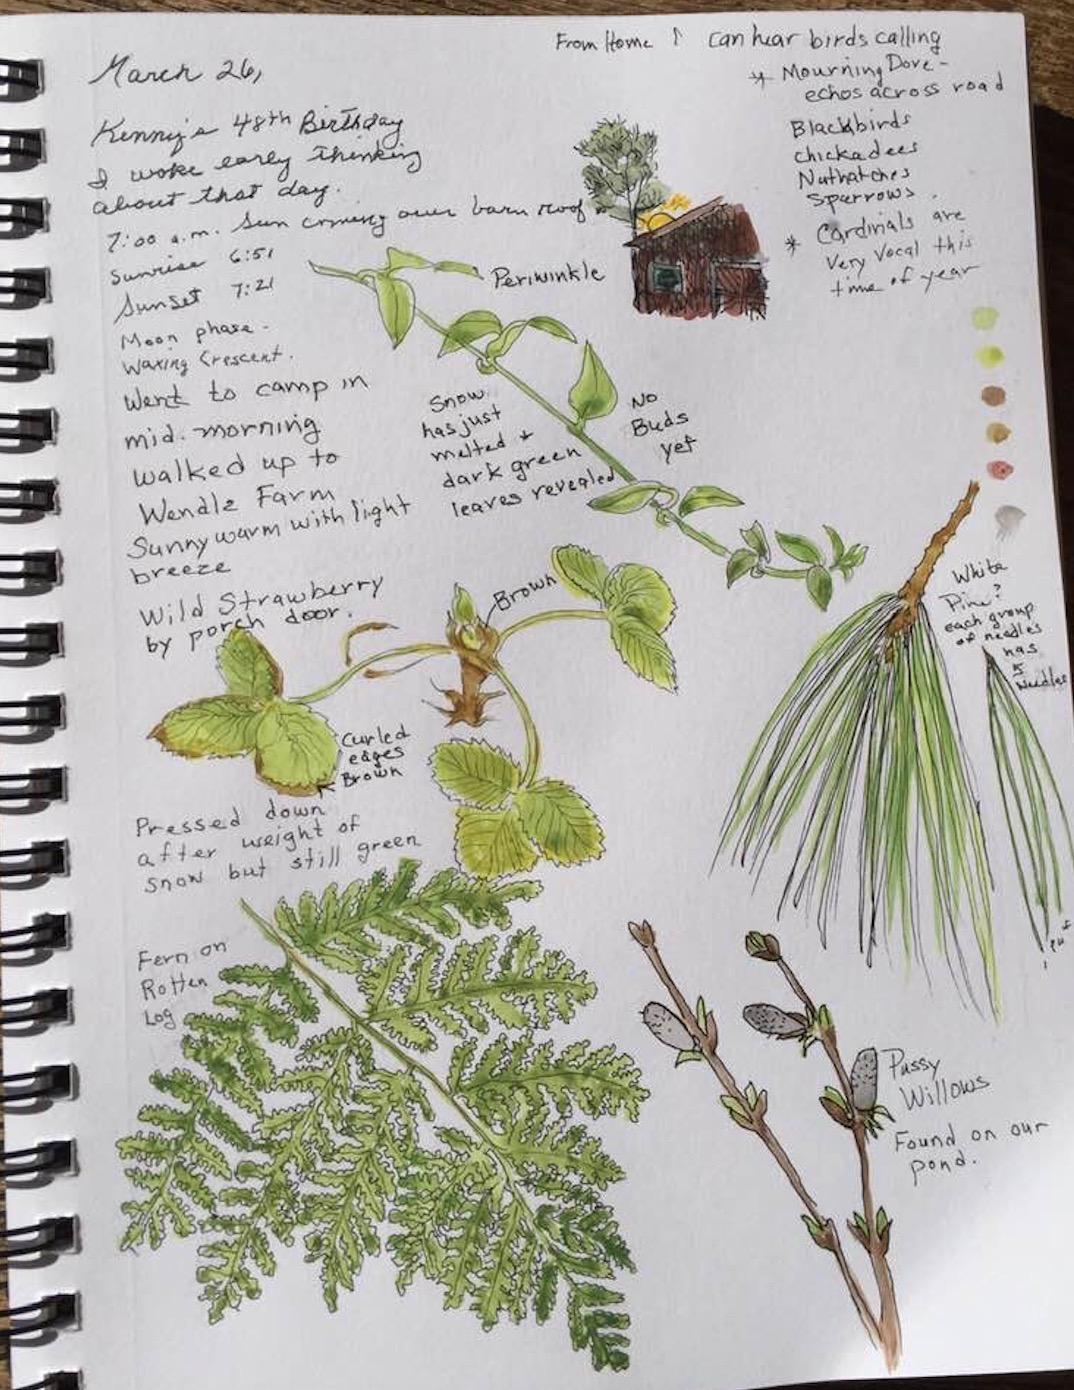 March 26,
Kenny's 48th Birthday
I woke early thinking
about that day.
7:00 a.m. Sun coming over barn roof
Sunrise 6:51
Sunset 7:21
Moon phase -
Waxing Crescent.
Went to camp in
mid-morning
walked up to
Wendle Farm
Sunny warm with light
breeze
From Home I can hear birds calling
* Mourning Dove -
echos across road
Blackbirds
chickadees
Nuthatches
Sparrows.
* Cardinals are
very vocal this
time of year
Periwinkle
Snow
has just
melted +
dark green
leaves revealed
No
Buds
yet
Wild Strawberry
by porch door.
Brown
Curled
edges
Brown
Pressed down
after weight of
snow but still green
White
Pine?
each group
of needles
has
5
Needles
Fern on
Rotten
Log
Pussy
Willows
Found on our
pond.